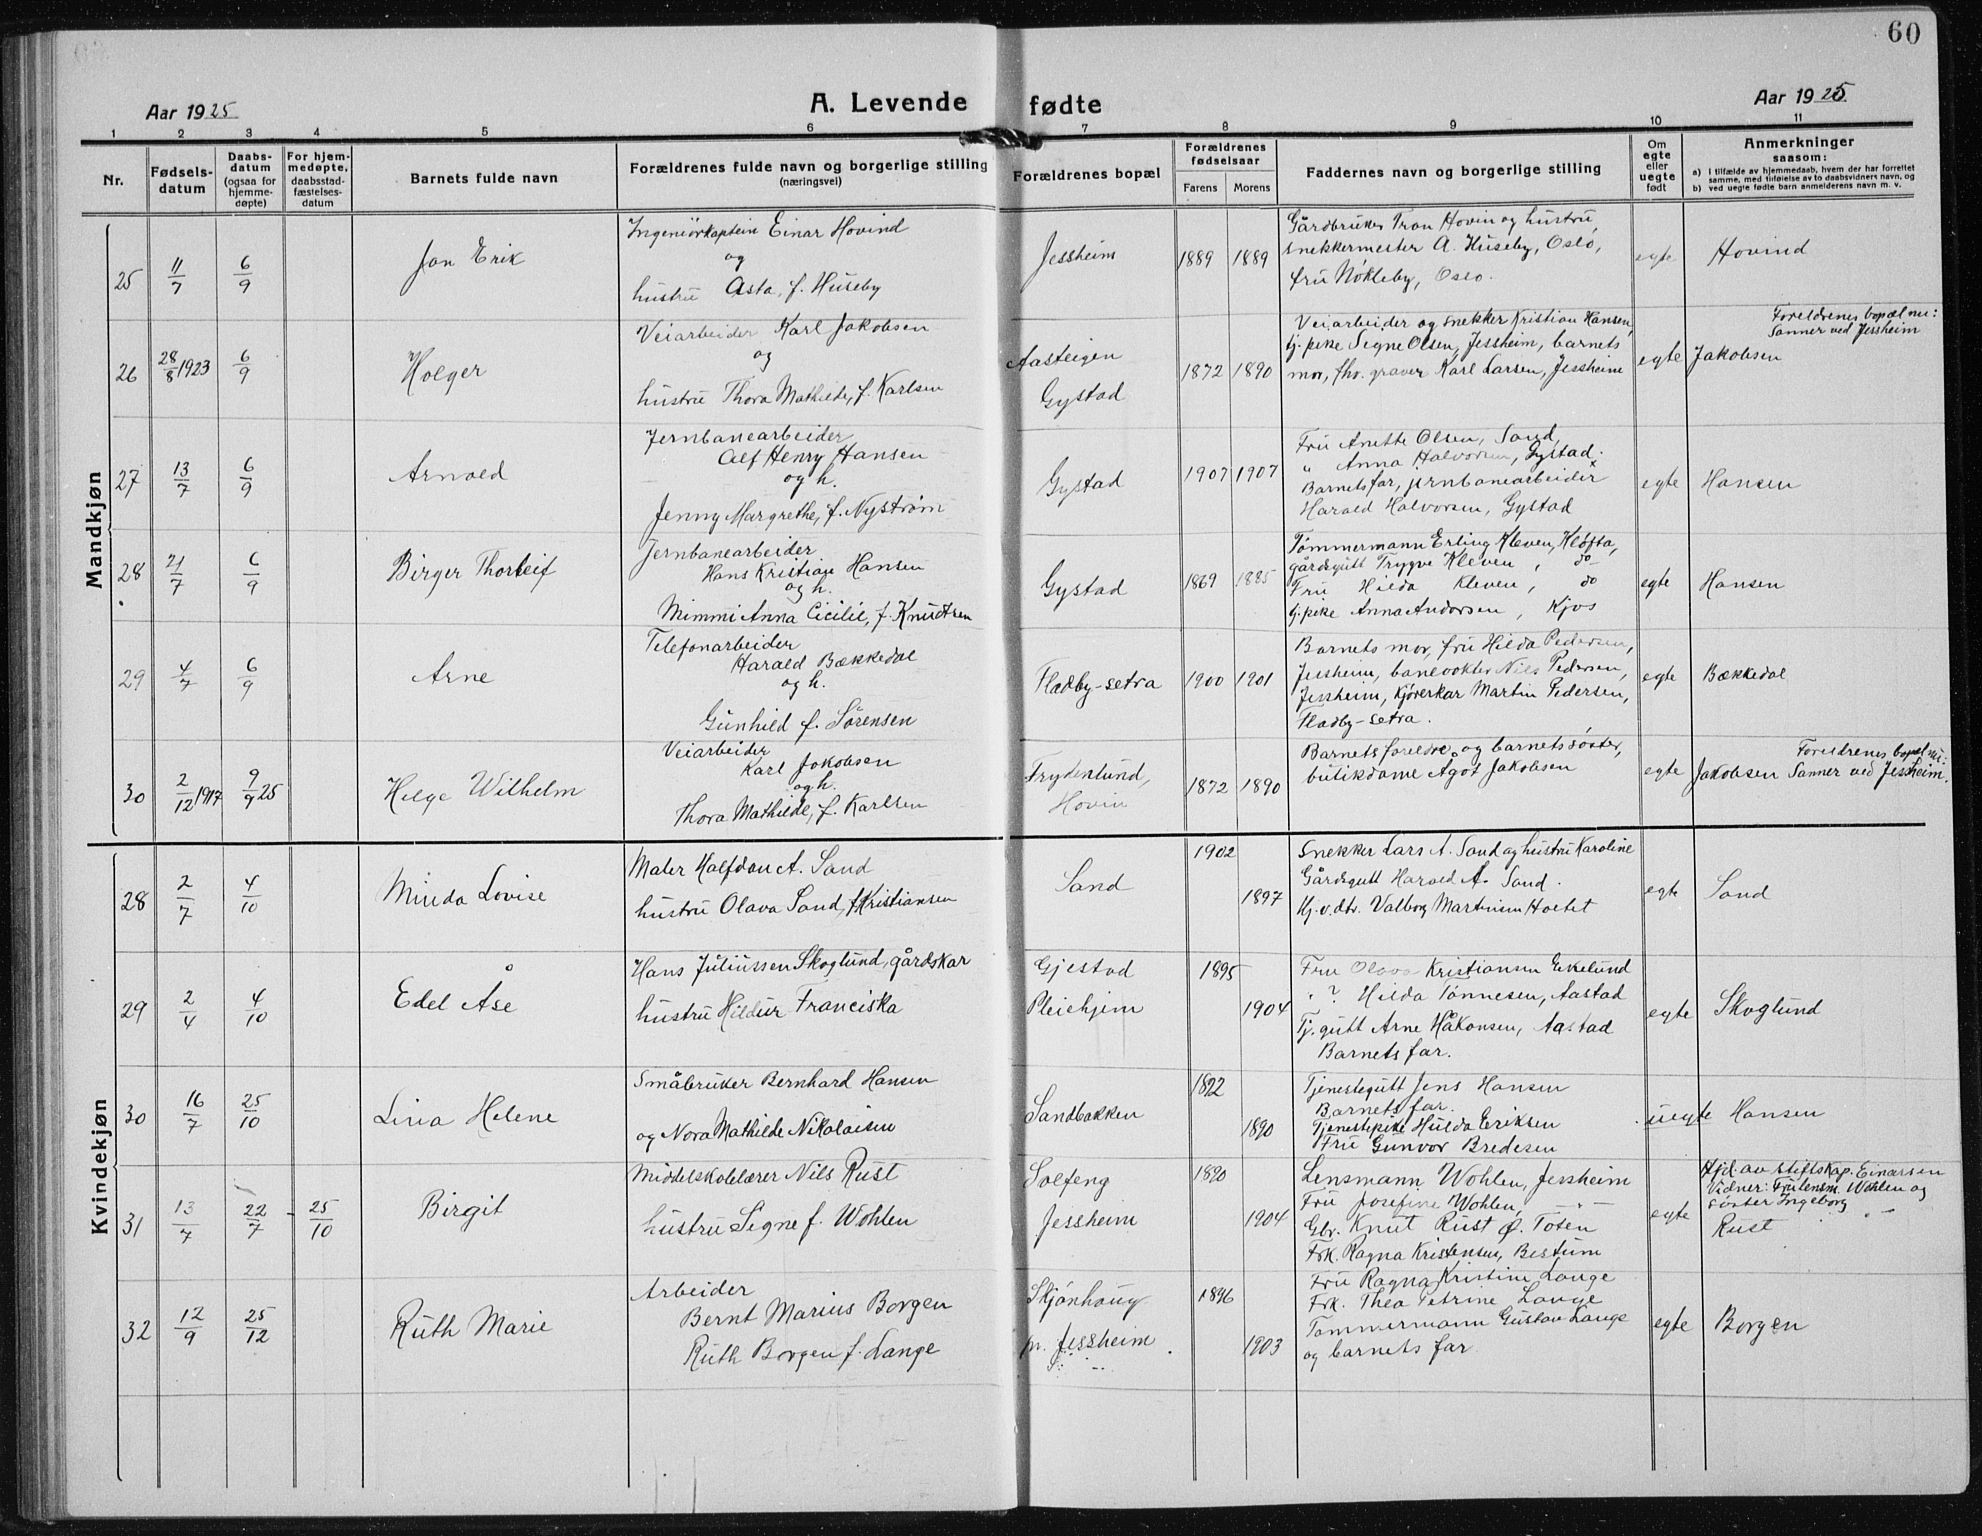 60
A. Levende fødte
Aar 1925
Aar 1925
1 2 3 4 5 6 7 8 9 10 11
Nr.
Fødsels-
datum
Daabs-
datum
(ogsaa for
hjemme-
døpte)
For hjem-
medøpte,
daabsstad-
fæstelses-
datum
Barnets fulde navn
Forældrenes fulde navn og borgerlige stilling
(næringsvei)
Forældrenes bopæl
Forældrenes
fødselsaar
Farens Morens
Faddernes navn og borgerlige stilling
Om
egte
eller
uegte
født
Anmerkninger
saasom:
a) i tilfælde av hjemmedaab, hvem der har forrettet
samme, med tilføielse av to daabsvidners navn, og
b) ved uegte fødte barn anmelderens navn m. v.
Mandkjøn
25 11/7 6/9 Jan Erik
Ingeniørkaptein Einar Hovind
og
hustru Asta, f. Huseby
Jessheim 1889 1889
Gårdbruker Tron Hovin og hustru,
snekkermester A. Huseby, Oslo,
fru Nøkleby, Oslo.
egte Hovind
26 28/8 1923 6/9 Holger
Veiarbeider Karl Jakobsen
og
hustru Thora Mathilde, f. Karlsen
Aasteigen
Gystad
1872 1890
Veiarbeider og snekker Kristian Hansen,
tj. pike Signe Olsen, Jessheim, barnets
mor, fhv. graver Karl Larsen, Jessheim
egte Jakobsen
Foreldrenes bopæl nu:
Sanner ved Jessheim
27 13/7 6/9 Arnold
Jernbanearbeider
Alf Henry Hansen
og h.
Jenny Margrethe, f. Nystrøm
Gystad 1907 1907
Fru Anette Olsen, Sand,
" Anna Halvorsen, Gystad.
Barnets far, jernbanearbeider
Harald Halvorsen, Gystad
egte Hansen
28 21/7 6/9 Birger Thorleif
Jernbanearbeider
Hans Kristian Hansen
og h.
Mimmi Anna Cicilie, f. Knudtsen
Gystad 1869 1885
Tømmermann Erling Kleven, Kløfta,
gårdsgutt Trygve Kleven, do
Fru Hilda Kleven, do
tj. pike Anna Andorsen, Kjos
egte Hansen
29 4/7 6/9 Arne
Telefonarbeider
Harald Bækkedal
og h.
Gunhild f. Sørensen
Fladby-setra 1900 1901
Barnets mor, fru Hilda Pedersen,
Jessheim, banevokter Nils Pedersen,
Jessheim, kjørerkar Martin Pedersen,
Fladby-setra.
egte Bækkedal
30 2/12 1917 9/9 25 Helge Wilhelm
Veiarbeider
Karl Jakobsen
og h.
Thora Mathilde, f. Karlsen
Frydenlund,
Hovin
1872 1890
Barnets foreldre og barnets søster,
butikdame Agot Jakobsen
egte Jakobsen
Foreldrenes bopæl nu:
Sanner ved Jessheim.
Kvindekjøn
28 2/7 4/10 Minda Lovise
Maler Halfdan A. Sand
hustru Olava Sand, f. Kristiansen
Sand 1902 1897
Snekker Lars A. Sand og hustru Karoline
Gårdsgutt Harald A. Sand.
Kj. v. dtr. Valborg Martinsen Holtet
egte Sand
29 2/4 4/10 Edel Åse
Hans Juliussen Skoglund, gårdskar
hustru Hildur Franciska
Gjestad
Pleiehjem
1895 1904
Fru Olava Kristiansen Eikelund
" ? Hilda Tønnesen, Aastad
Tj. gutt Arne Håkonsen, Aastad
Barnets far.
egte Skoglund
30 16/7 25/10 Lina Helene
Småbruker Bernhard Hansen
og Nora Mathilde Nikolaisen
Sandbakken 1890
Tjenestegutt Jens Hansen
Barnets far.
Tjenestepike Hulda Eriksen
Fru Gunvor Bredesen
uegte Hansen
31 13/7 22/7 - 25/10 Birgit
Middelskolelærer Nils Rust
hustru Signe f. Wohlen
Solfeng
Jessheim
1890 1904
Lensmann Wohlen, Jessheim
Fru Josefine Wohlen, — " —
Gbr. Knut Rust Ø. Toten
Frk. Ragna Kristensen, Bestum
egte
Hjd. av stiftskap. Einarsen
Vidner: Fru lensm. Wohlen og
søster Ingeborg
Rust
32 12/9 25/12 Ruth Marie
Arbeider
Bernt Marius Borgen
Ruth Borgen f. Lange
Skjønhaug
pr. Jessheim
1896 1903
Fru Ragna Kristine Lange
Frk. Thea Petrine Lange
Tømmermann Gustav Lange
og barnets far
egte Borgen